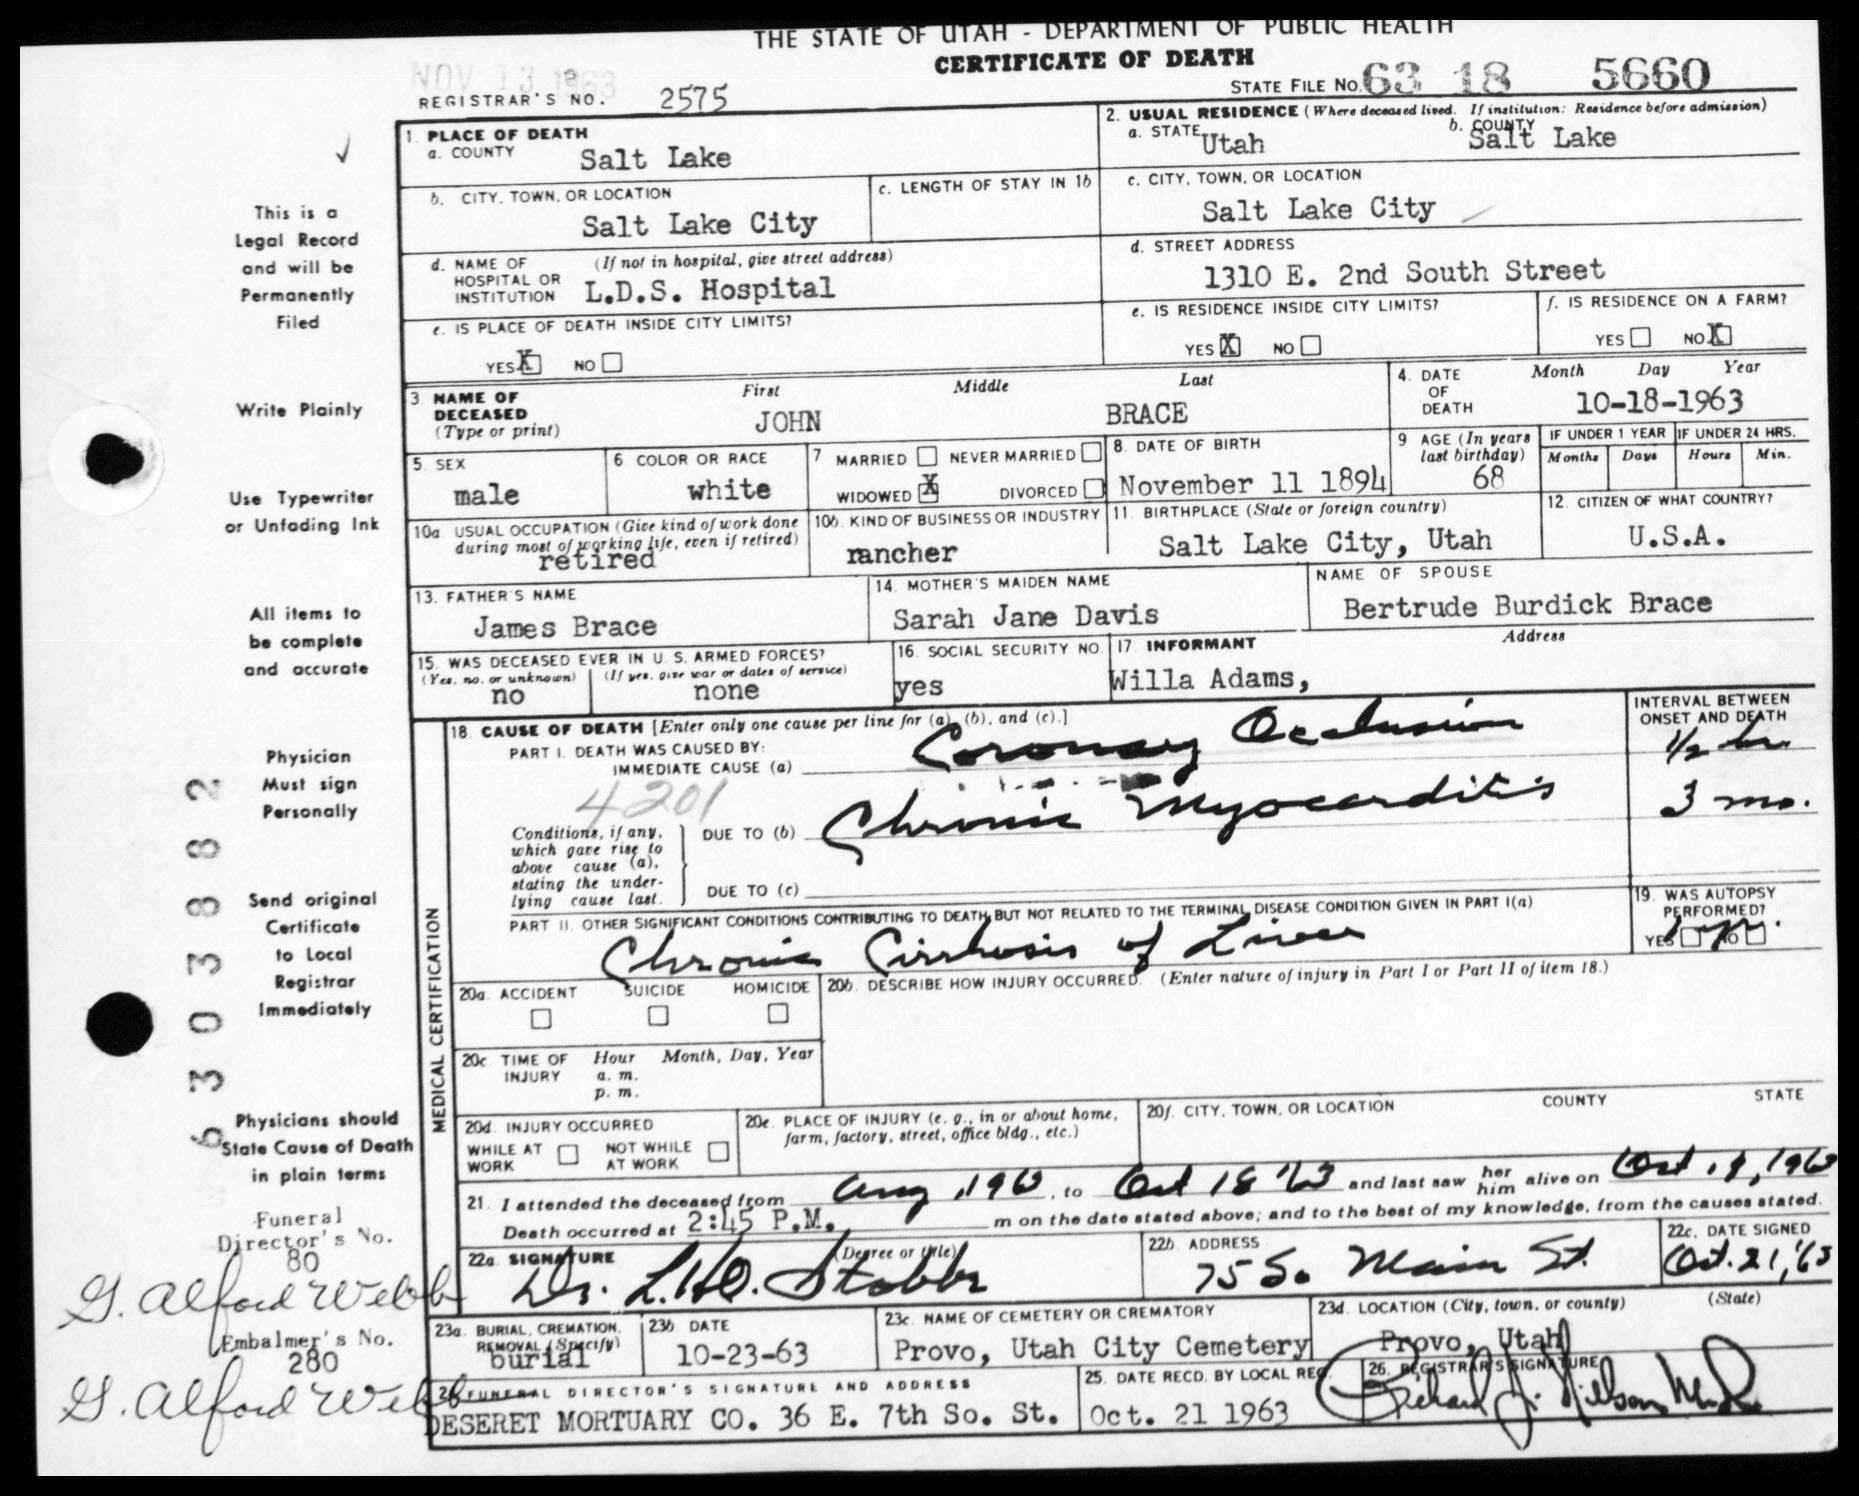 THE STATE OF UTAH - DEPARTMENT OF PUBLIC HEALTH
CERTIFICATE OF DEATH
NOV 13 1963
REGISTRAR'S NO. 2575
STATE FILE NO. 63 18 5660
1. PLACE OF DEATH
a. COUNTY Salt Lake
2. USUAL RESIDENCE (Where deceased lived. If institution: Residence before admission)
a. STATE Utah b. COUNTY Salt Lake
b. CITY, TOWN, OR LOCATION Salt Lake City
c. LENGTH OF STAY IN 1b
c. CITY, TOWN, OR LOCATION Salt Lake City
d. NAME OF HOSPITAL OR INSTITUTION (If not in hospital, give street address) L.D.S. Hospital
d. STREET ADDRESS 1310 E. 2nd South Street
e. IS PLACE OF DEATH INSIDE CITY LIMITS?
YES X NO
e. IS RESIDENCE INSIDE CITY LIMITS?
YES X NO
f. IS RESIDENCE ON A FARM?
YES NO X
3. NAME OF DECEASED (Type or print)
First Middle Last
JOHN BRACE
4. DATE OF DEATH Month Day Year
10-18-1963
5. SEX male
6. COLOR OR RACE white
7 MARRIED NEVER MARRIED
WIDOWED X DIVORCED
8. DATE OF BIRTH November 11 1894
9 AGE (In years last birthday) 68
IF UNDER 1 YEAR Months Days
IF UNDER 24 HRS. Hours Min.
10a. USUAL OCCUPATION (Give kind of work done during most of working life, even if retired) retired
10b. KIND OF BUSINESS OR INDUSTRY rancher
11. BIRTHPLACE (State or foreign country) Salt Lake City, Utah
12. CITIZEN OF WHAT COUNTRY? U.S.A.
13. FATHER'S NAME James Brace
14. MOTHER'S MAIDEN NAME Sarah Jane Davis
NAME OF SPOUSE Bertrude Burdick Brace
15. WAS DECEASED EVER IN U. S. ARMED FORCES?
(Yes, no, or unknown) no
(If yes, give war or dates of service) none
16. SOCIAL SECURITY NO. yes
17. INFORMANT Address
Willa Adams,
MEDICAL CERTIFICATION
18. CAUSE OF DEATH [Enter only one cause per line for (a), (b), and (c).]
INTERVAL BETWEEN ONSET AND DEATH
PART I. DEATH WAS CAUSED BY:
IMMEDIATE CAUSE (a) Coronary Occlusion 1/2 hr.
4201
Conditions, if any, which gave rise to above cause (a), stating the underlying cause last.
DUE TO (b) Chronic Myocarditis 3 mo.
DUE TO (c)
PART II. OTHER SIGNIFICANT CONDITIONS CONTRIBUTING TO DEATH BUT NOT RELATED TO THE TERMINAL DISEASE CONDITION GIVEN IN PART I(a)
Chronic Cirrhosis of Liver
19. WAS AUTOPSY PERFORMED?
YES NO
20a. ACCIDENT SUICIDE HOMICIDE
20b. DESCRIBE HOW INJURY OCCURRED. (Enter nature of injury in Part I or Part II of item 18.)
20c. TIME OF INJURY Hour Month, Day, Year
a. m.
p. m.
20d. INJURY OCCURRED
WHILE AT WORK NOT WHILE AT WORK
20e. PLACE OF INJURY (e. g., in or about home, farm, factory, street, office bldg., etc.)
20f. CITY, TOWN, OR LOCATION COUNTY STATE
21. I attended the deceased from Aug , 1963, to Oct 18 '63 and last saw her him alive on Oct. , 1963
Death occurred at 2:45 P.M. m on the date stated above; and to the best of my knowledge, from the causes stated.
22a. SIGNATURE (Degree or title)
Dr. L.H.O. Stobbe
22b. ADDRESS 75 So. Main St.
22c. DATE SIGNED Oct. 21, '63
23a. BURIAL, CREMATION, REMOVAL (Specify) burial
23b. DATE 10-23-63
23c. NAME OF CEMETERY OR CREMATORY Provo, Utah City Cemetery
23d. LOCATION (City, town, or county) (State) Provo, Utah
24. FUNERAL DIRECTOR'S SIGNATURE AND ADDRESS
DESERET MORTUARY CO. 36 E. 7th So. St.
25. DATE RECD. BY LOCAL REG. Oct. 21 1963
26. REGISTRAR'S SIGNATURE
This is a
Legal Record
and will be
Permanently
Filed
Write Plainly
Use Typewriter
or Unfading Ink
All items to
be complete
and accurate
Physician
Must sign
Personally
Send original
Certificate
to Local
Registrar
Immediately
Physicians should
State Cause of Death
in plain terms
63030382
Funeral
Director's No.
80
G. Alford Webb
Embalmer's No.
280
G. Alford Webb